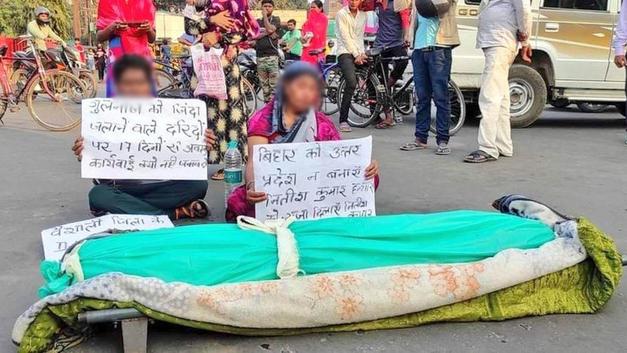 गुलनाज को जिंदा
जलाने वाले दरिंदो
पर 17 दिनों से
कार्यवाई क्यों नहीं
बिहार को उत्तर
प्रदेश न बनाएं
नितीश कुमार
को सजा दिलाएं नितीश
वैशाली जिला के